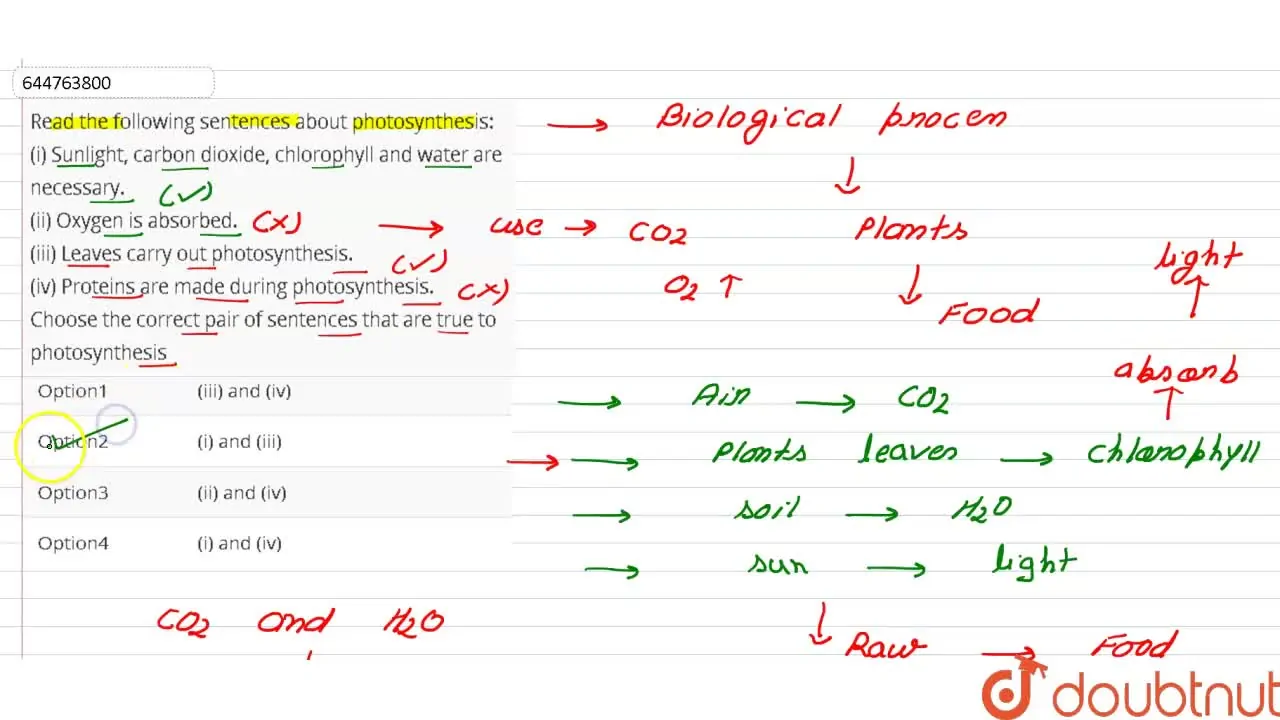 644763800
Read the following sentences about photosynthesis:
(i) Sunlight, carbon dioxide, chlorophyll and water are
necessary. (✓)
(ii) Oxygen is absorbed. (X)
(iii) Leaves carry out photosynthesis. (✓)
(iv) Proteins are made during photosynthesis. (X)
Choose the correct pair of sentences that are true to
photosynthesis
Option1 (iii) and (iv)
Option2 (i) and (iii)
Option3 (ii) and (iv)
Option4 (i) and (iv)
CO2 and H2O
→ Biological process
↓
→ use → CO2 Plants
O2 ↑ ↓
Food
light
↑
absorb
↑
→ Air → CO2
→ → Plants leaves → chlorophyll
→ soil → H2O
→ sun → light
↓
Raw → Food
doubtnut